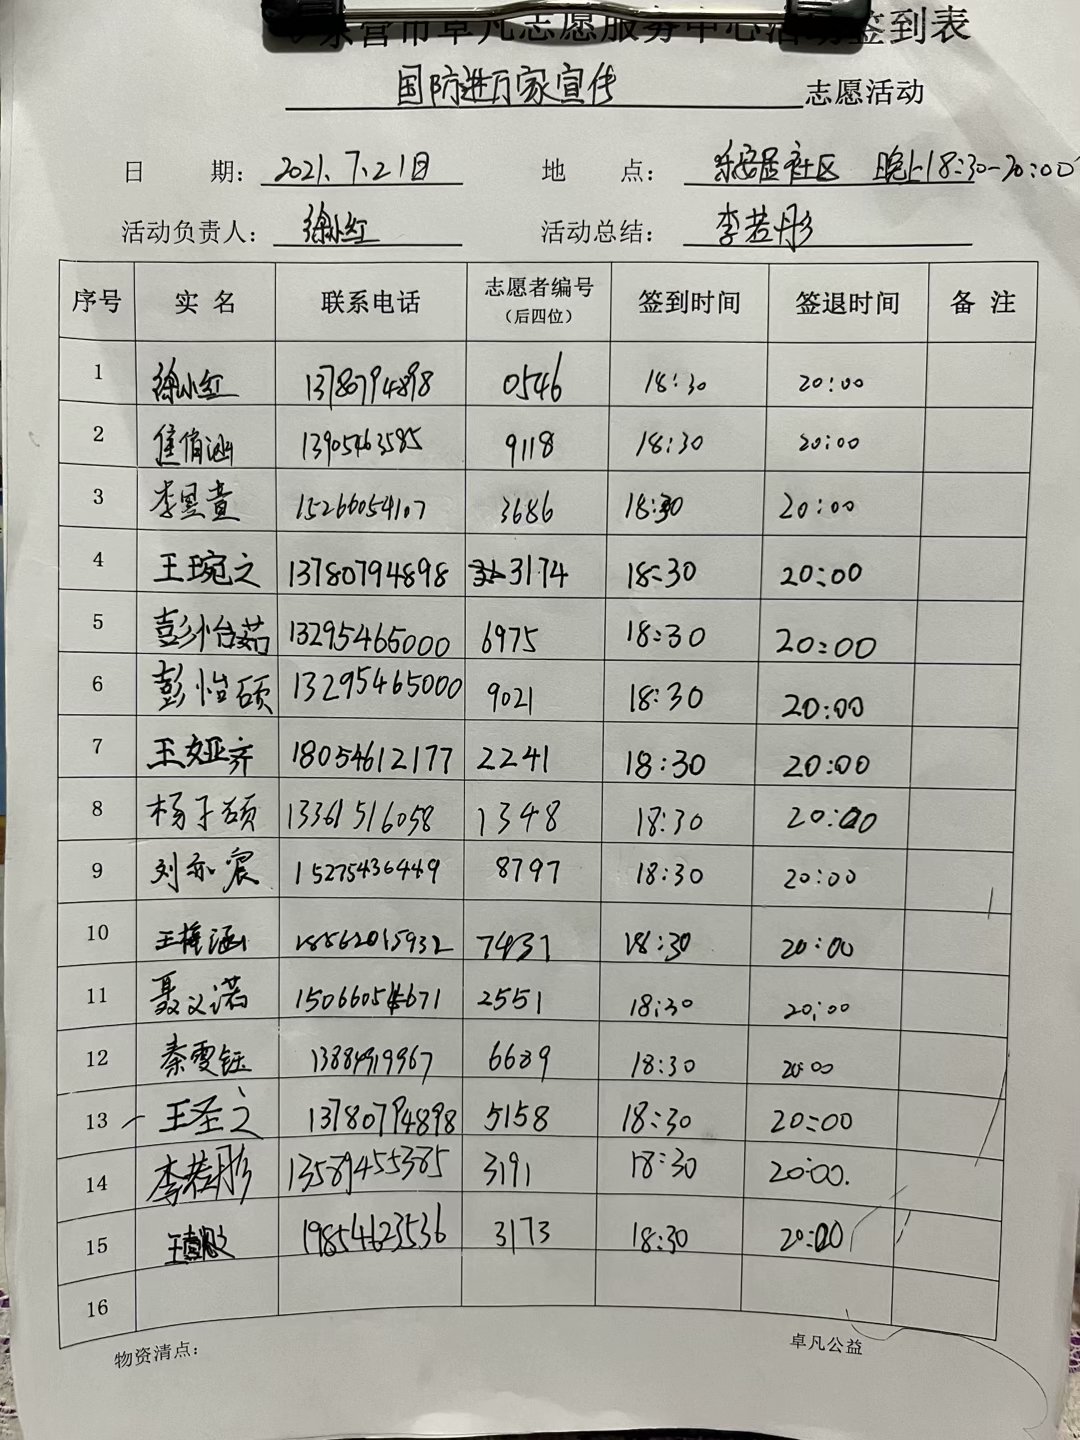 东营市卓凡志愿服务中心活动签到表
国防进万家宣传 志愿活动
日 期: 2021.7.21日 地 点: 乐安居社区 晚上18:30-20:00
活动负责人: 徐小红 活动总结: 李若彤
序号 实 名 联系电话 志愿者编号(后四位) 签到时间 签退时间 备 注
1 徐小红 13780794898 0546 18:30 20:00
2 焦俏涵 13905463585 9118 18:30 20:00
3 李昱萱 15266054107 3686 18:30 20:00
4 王琬之 13780794898 3174 18:30 20:00
5 彭怡茹 13295465000 6975 18:30 20:00
6 彭怡硕 13295465000 9021 18:30 20:00
7 王娅齐 18054612177 2241 18:30 20:00
8 杨子硕 13361516058 1348 18:30 20:00
9 刘亦宸 15275436449 8797 18:30 20:00
10 王梓涵 18562015932 7431 18:30 20:00
11 聂文诺 15066054671 2551 18:30 20:00
12 秦雯钰 13884919967 6689 18:30 20:00
13 王圣之 13780794898 5158 18:30 20:00
14 李若彤 13589455385 3191 18:30 20:00.
15 王 19854623536 3173 18:30 20:00
16
物资清点: 卓凡公益